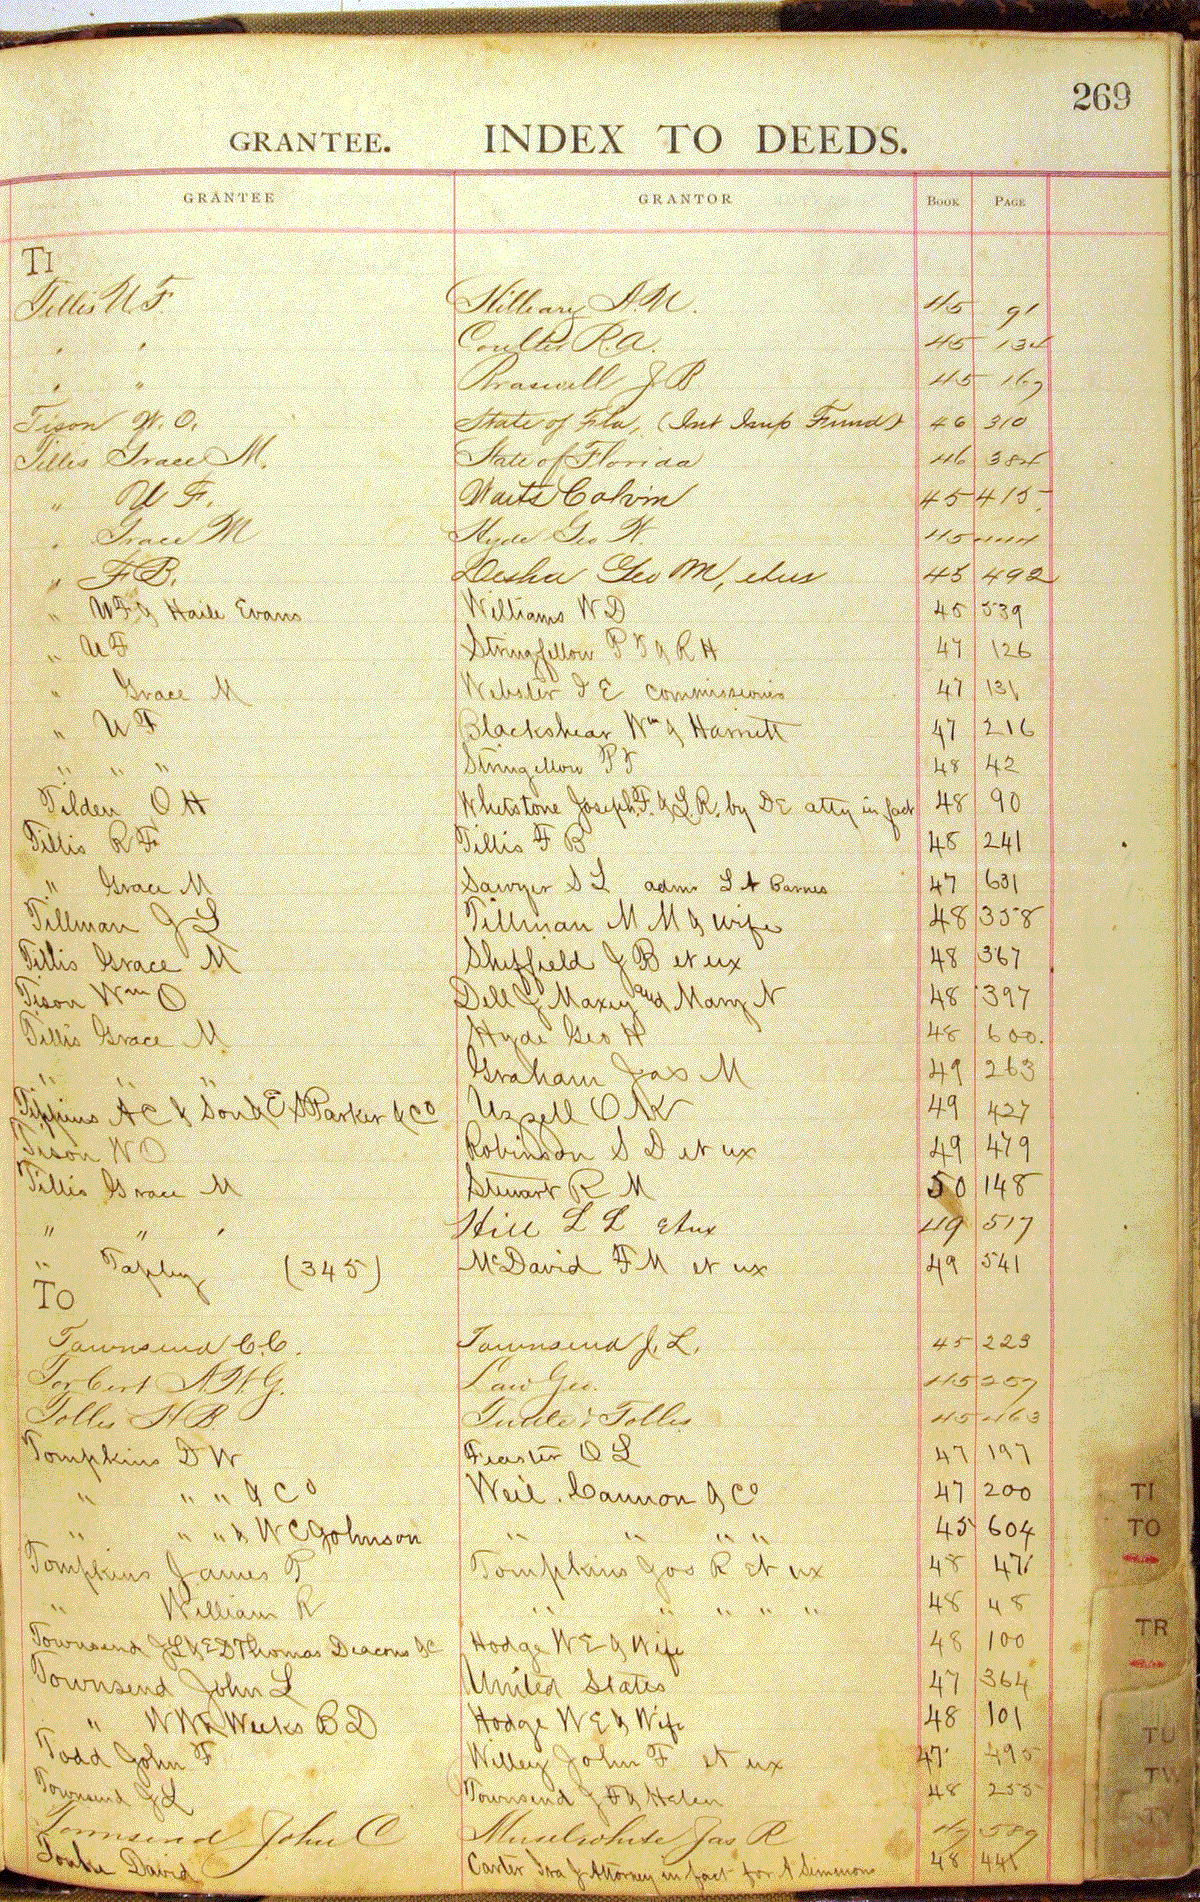 269
GRANTEE. INDEX TO DEEDS.
GRANTEE GRANTOR BOOK PAGE
TI
Tillis U. F. Hilliary A. M. 45 91
" " Coulter R. A. 45 134
" " Braswell J B 45 167
Tison W. O. State of Fla, (Int Imp Fund) 46 310
Tillis Grace M. State of Florida 46 384
" U F. Waits Calvin 45 415
. Grace M Hyde Geo H. 45 444
" F B. Desha Geo M, etux 45 492
" U F & Haile Evans Williams W D 45 539
" U F Stringfellow P F & R H 47 126
" Grace M Webster I E commissioner 47 131
" U F Blackshear Wm & Harriett 47 216
" " " Stringellow P F 48 42
Tilden O H Whetstone Joseph. F. & L. R. by D E atty in fact 48 90
Tillis R F Tillis F B 48 241
" Grace M Sawyer S L admr L A Barnes 47 631
Tillman J L Tillman M M & wife 48 358
Tillis Grace M Sheffield J B et ux 48 367
Tison Wm O Dell J Maxey and Mary N 48 397
Tillis Grace M Hyde Geo H 48 600.
" " " Graham Jas M 49 263
Tippins A C & Son & E S Parker & Co Uzzell O M 49 427
Tison W O Robinson S D et ux 49 479
Tillis Grace M Stewart R M 50 148
" " " Hill L L etux 49 517
" Tapley (345) McDavid F M et ux 49 541
TO
Townsend C. C. Townsend J. L. 45 223
Torbert A. H. G. Law Geo. 45 257
Tolles H. B. & Tolles 45 463
Tompkins D W Feaster O L 47 197
" " " & Co Weil. Cannon & Co 47 200
" " " & W C Johnson " " " " 45 604
Tompkins James T Tompkins Jos R et ux 48 47
" William R " " " " " 48 48
Townsend J L & E D Thomas Deacons &c Hodge W E & Wife 48 100
Townsend John L United States 47 364
" W W & Weeks B D Hodge W E & Wife 48 101
Todd John F Willey John F et ux 47 495
Townsend J L Townsend J F & Helen 48 255
Townsend John C Muselwhite Jas R 49 589
David Carter Ira J Attorney in fact for A Simmons 48 441
TI
TO
TR
TU
TW
TY